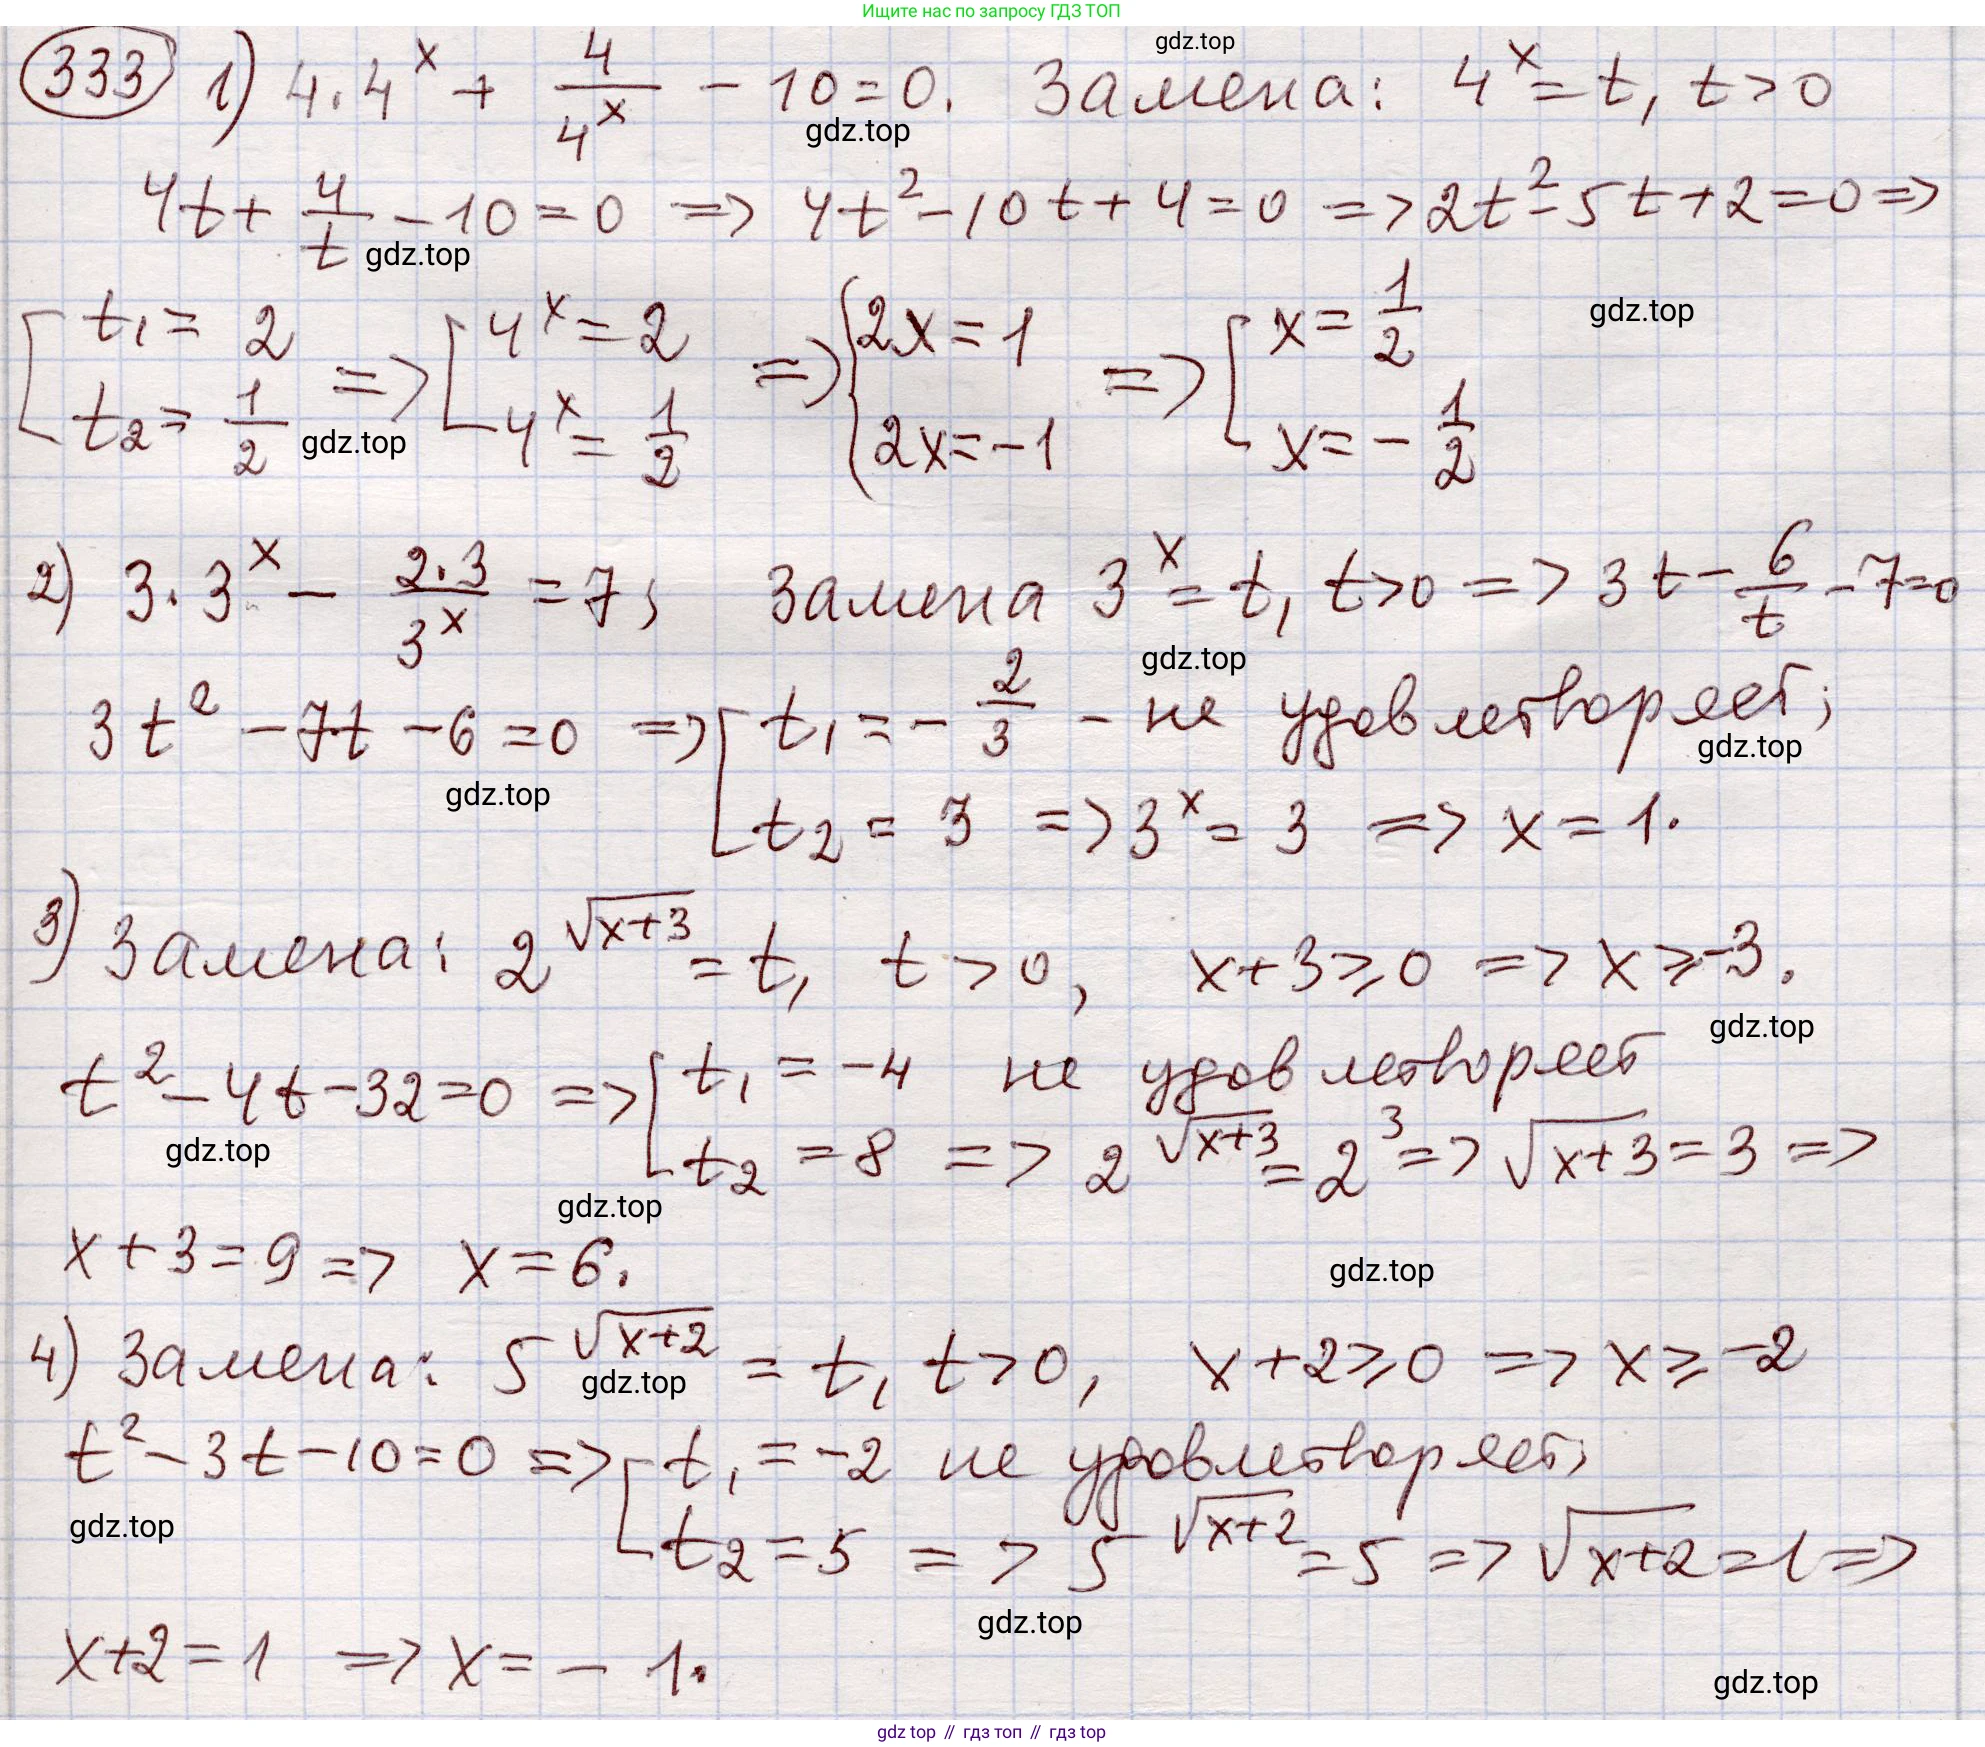 Ищите нас по запросу ГДЗ ТОП
gdz.top
333 1) 4·4^x + 4/4^x − 10 = 0. Замена: 4^x = t, t > 0
gdz.top
4t + 4/t − 10 = 0 => 4t² − 10t + 4 = 0 => 2t² − 5t + 2 = 0 =>
gdz.top
[ t₁ = 2 => [ 4^x = 2 => { 2x = 1 => [ x = 1/2
gdz.top
t₂ = 1/2 4^x = 1/2 2x = −1 x = − 1/2
gdz.top
2) 3·3^x − 2·3/3^x = 7; Замена 3^x = t, t > 0 => 3t − 6/t − 7 = 0
gdz.top
3t² − 7t − 6 = 0 => [ t₁ = − 2/3 − не удовлетворяет;
gdz.top
gdz.top
t₂ = 3 => 3^x = 3 => x = 1.
3) Замена: 2^√(x+3) = t, t > 0, x + 3 ⩾ 0 => x ⩾ −3.
gdz.top
t² − 4t − 32 = 0 => [ t₁ = −4 не удовлетворяет
gdz.top
t₂ = 8 => 2^√(x+3) = 2³ => √(x+3) = 3 =>
gdz.top
x + 3 = 9 => x = 6.
gdz.top
4) Замена: 5^√(x+2) = t, t > 0, x + 2 ⩾ 0 => x ⩾ −2
gdz.top
t² − 3t − 10 = 0 => [ t₁ = −2 не удовлетворяет;
gdz.top
t₂ = 5 => 5^√(x+2) = 5 => √(x+2) = 1 =>
gdz.top
x + 2 = 1 => x = − 1.
gdz.top
gdz top // гдз топ // гдз top